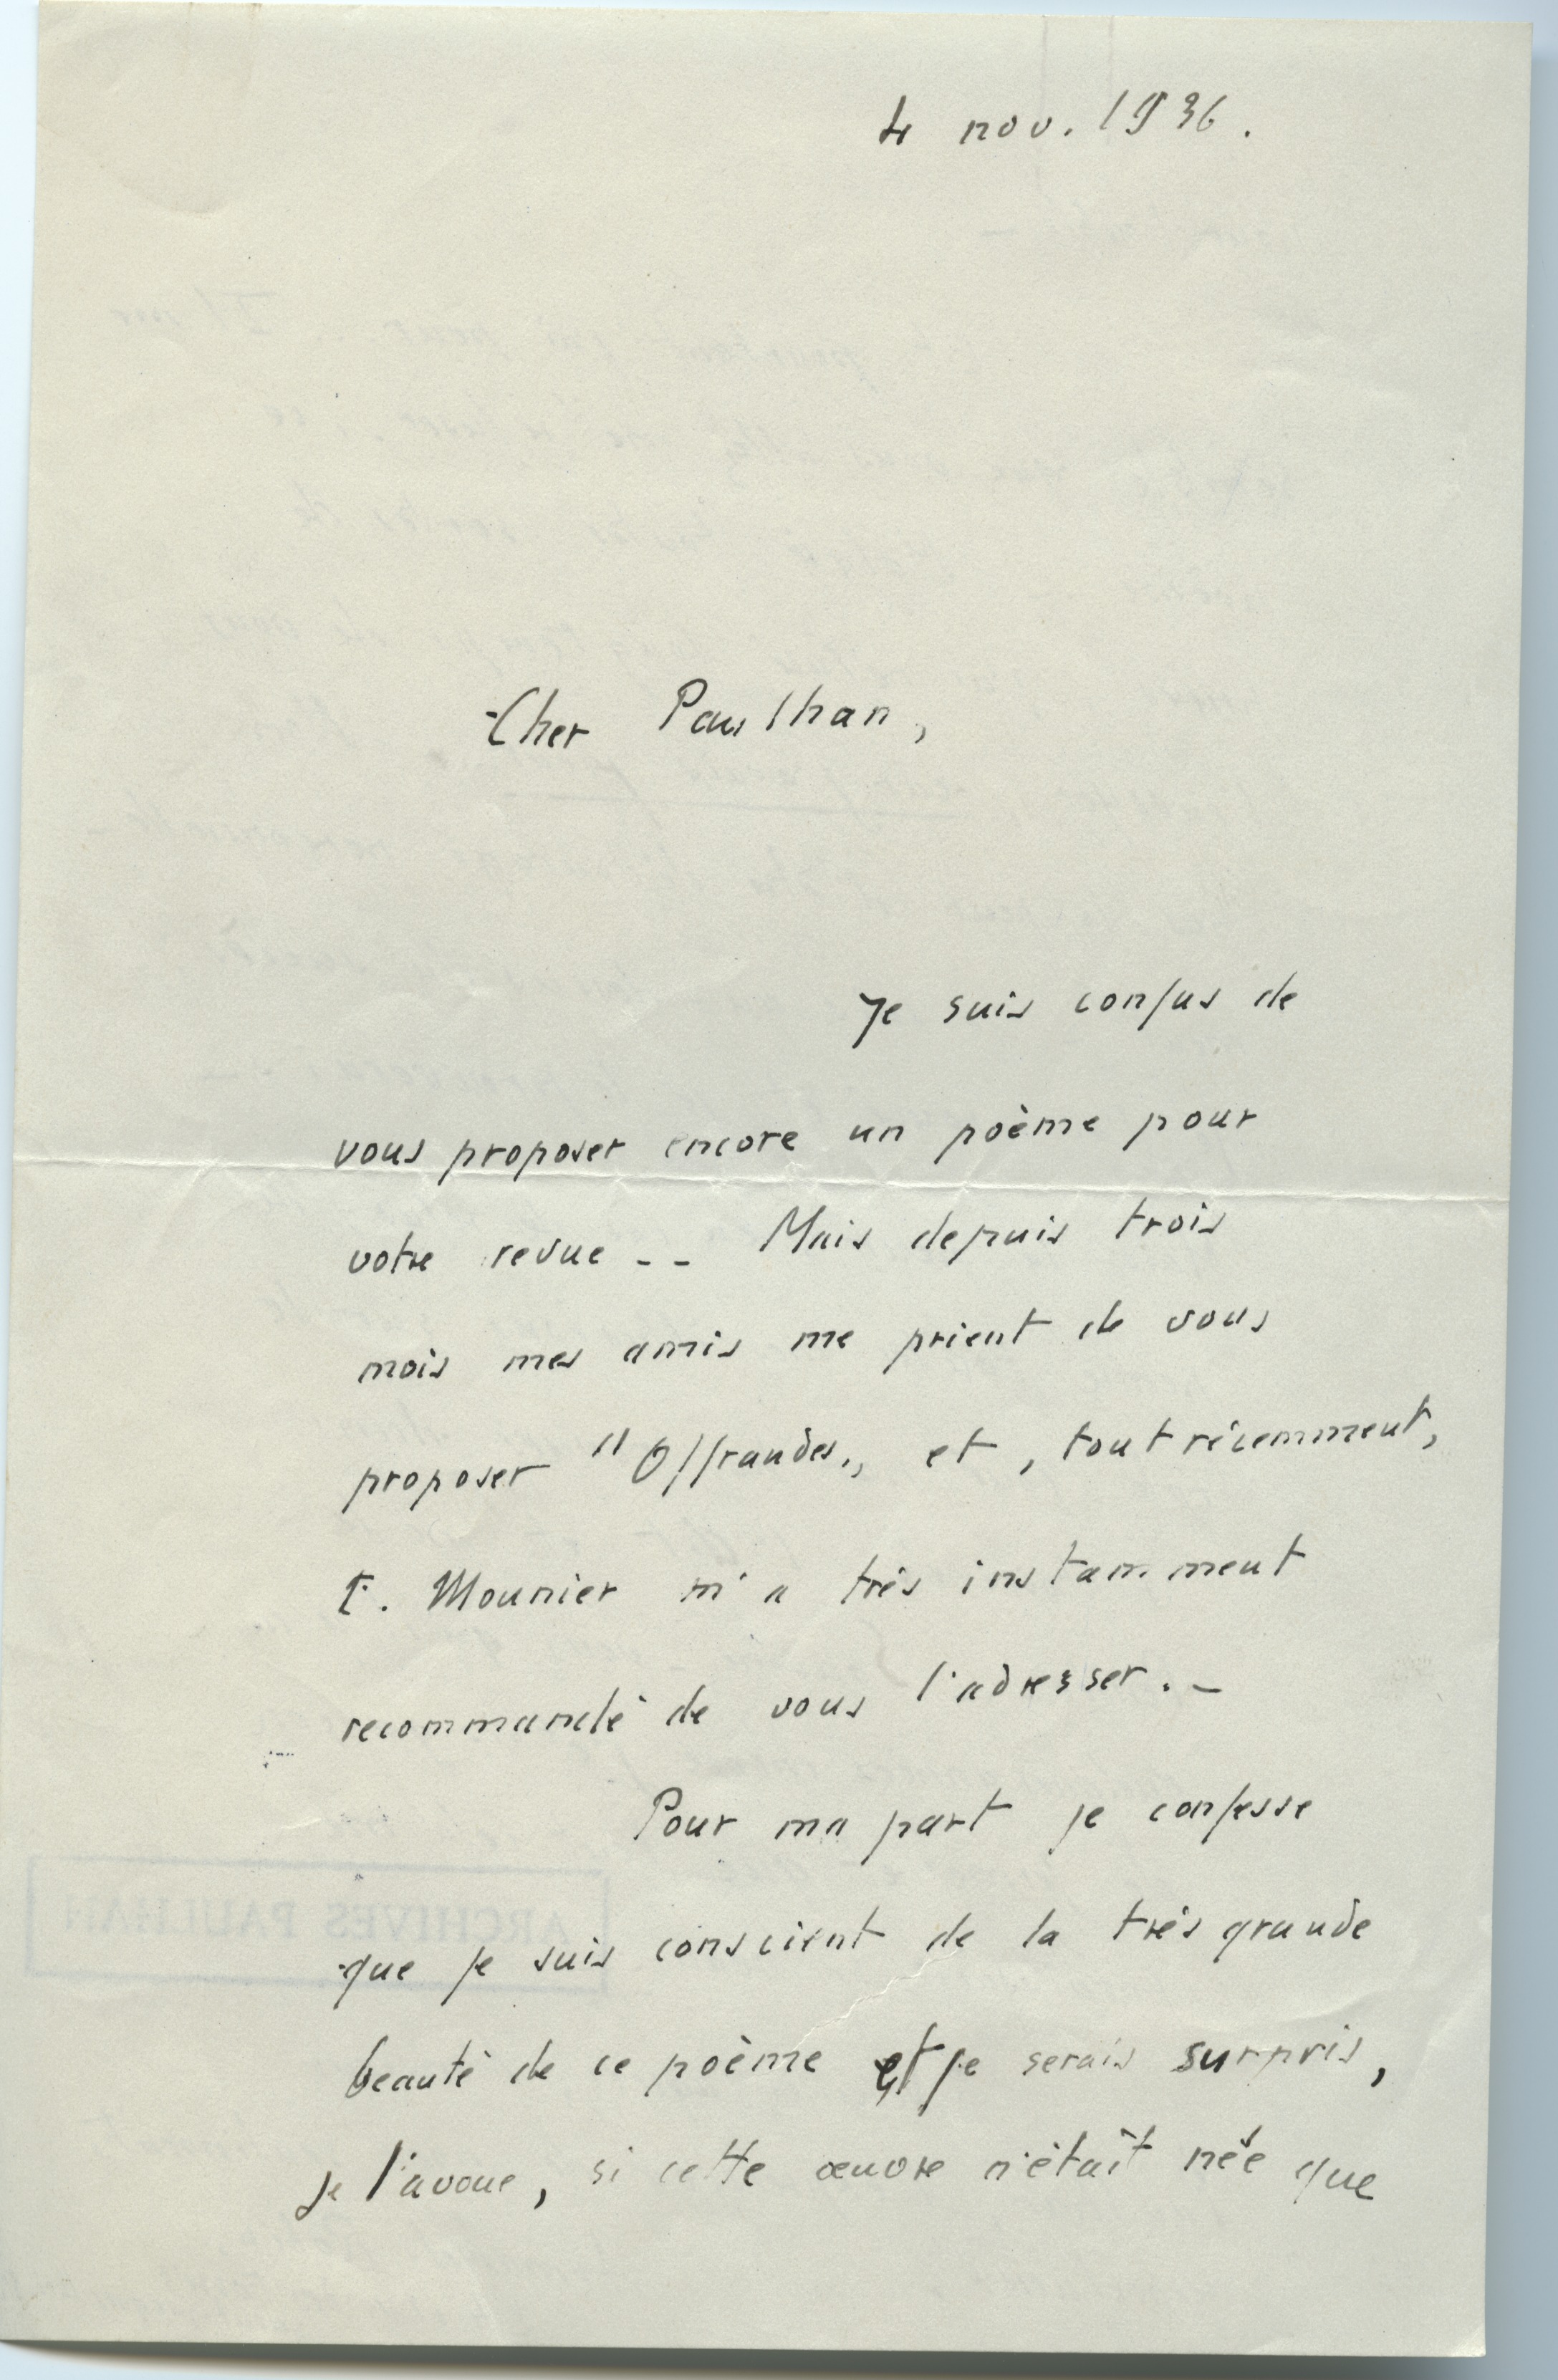 4 nov. 1936.
Cher Paulhan,
Je suis confus de
vous proposer encore un poème pour
votre revue -- Mais depuis trois
mois mes amis me prient de vous
proposer "Offrandes„ et, tout récemment,
E. Mounier m'a très instamment
recommandé de vous l'adresser. -
Pour ma part je confesse
que je suis conscient de la très grande
beauté de ce poème et je serais surpris,
je l'avoue, si cette œuvre n'était née que
ARCHIVES PAULHAN